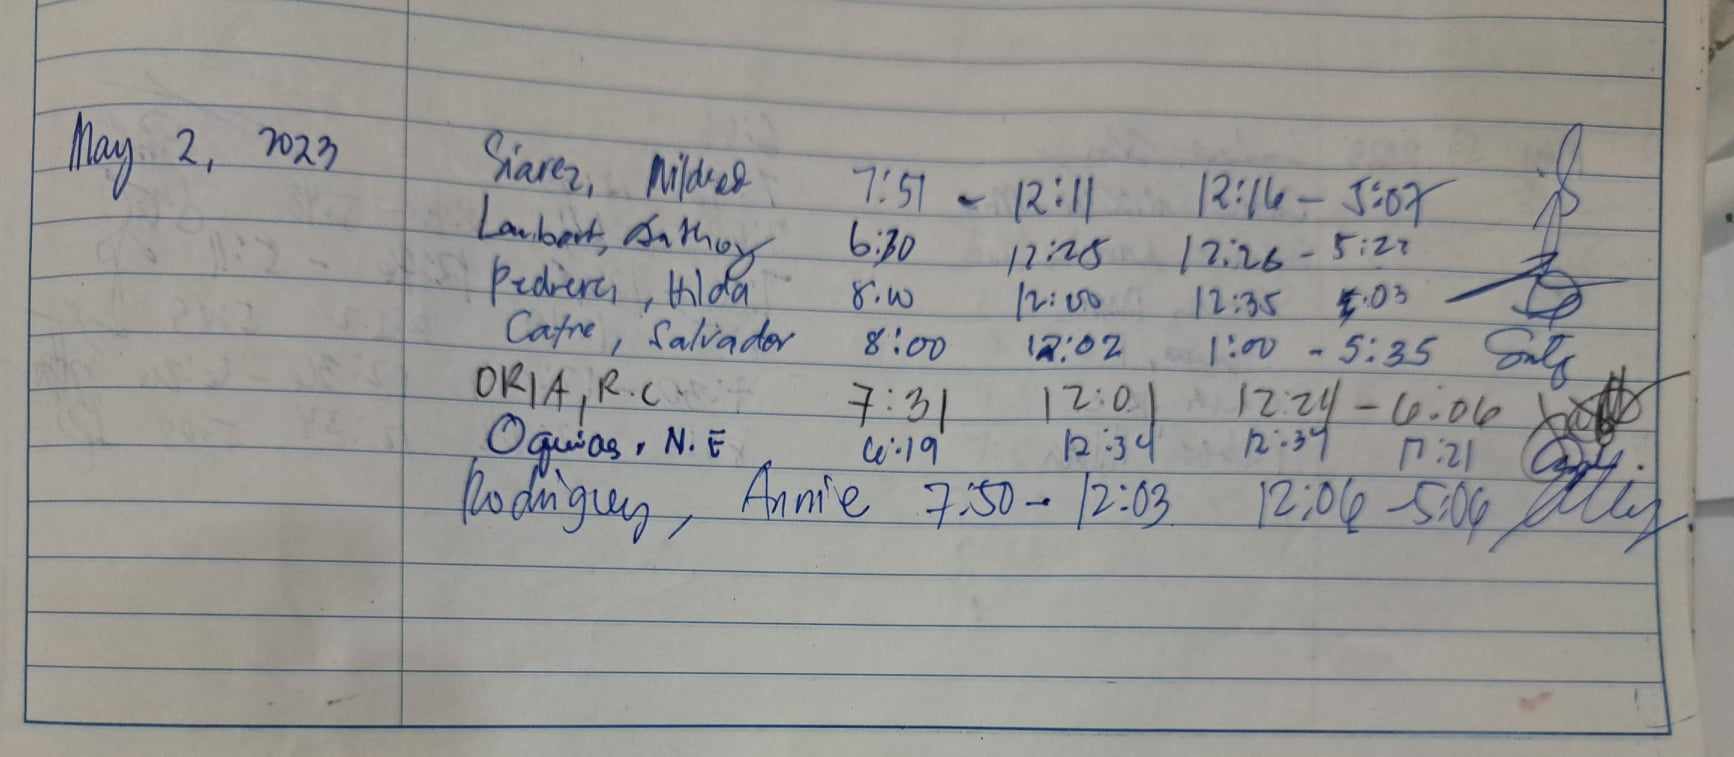 May 2, 2023 Siarez, Mildred 7:51 - 12:11 12:16 - 5:07
Lambert, Anthoy 6:30 12:25 12:26 - 5:22
Pedrera, Hilda 8:00 12:00 12:35 5:03
Catre, Salvador 8:00 12:02 1:00 - 5:35
ORIA, R.C. 7:31 12:01 12:24 - 6:06
Oquias, N.E 6:19 12:34 12:34 17:21
Rodriguez, Annie 7:50 - 12:03 12:06 - 5:06